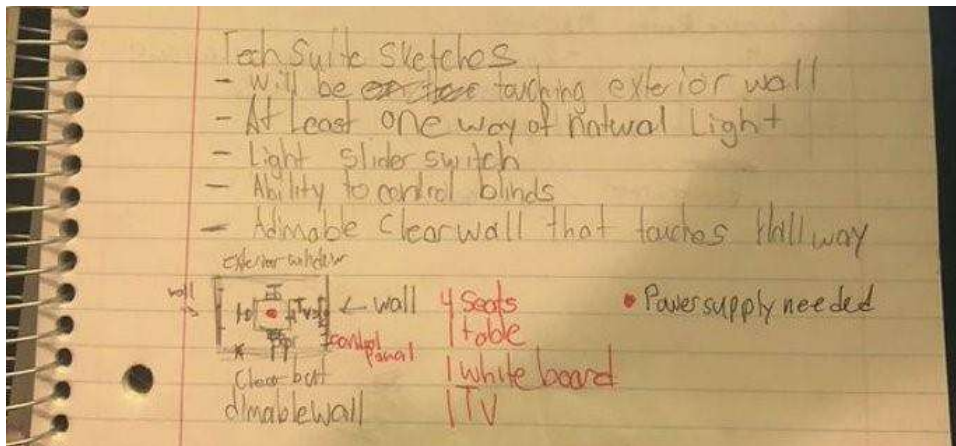 Tech Suite Sketches
- Will be touching exterior wall
- At Least one way of natural Light
- Light slider switch
- Ability to control blinds
- Admable Clear wall that touches Hallway
exterior window
wall
TV
← wall
control
panal
Clear but
dimable wall
4 Seats
1 table
1 white board
1 TV
• Power supply needed